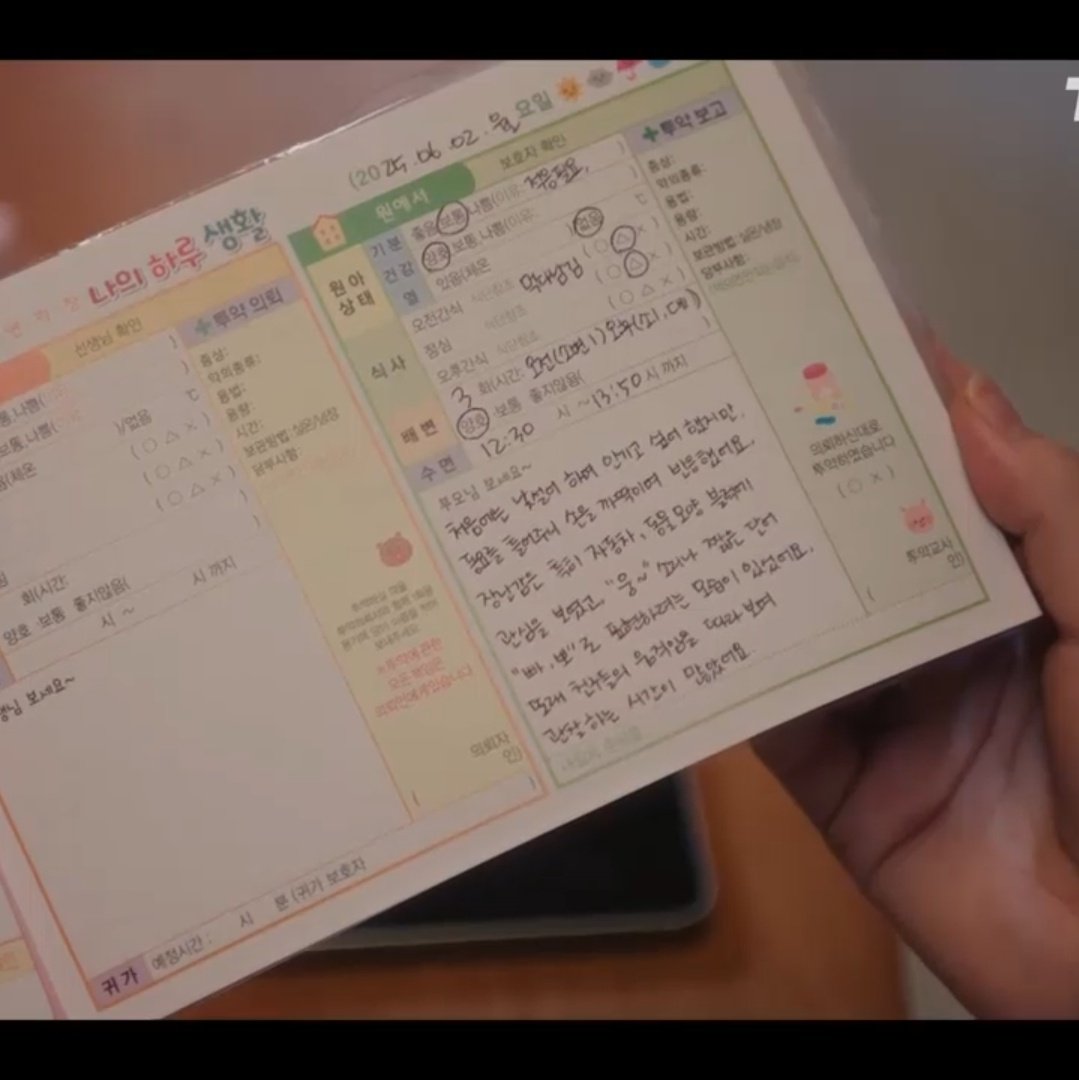 나의 하루 생활
(2025.06.02.월요일
선생님 확인
+투약 의뢰
증상:
약의종류:
용법:
용량:
시간:
보관방법:실온/냉장
당부사항:
통,나쁨(
보통,나쁨(
)/없음
℃
(○ △ ×)
(○ △ ×)
(○ △ ×)
회(시간:
양호 보통 좋지않음(
시 ~ 시 까지
생님 보세요~
투약의뢰서와 함께 1회용
보내주세요
※투약에 관한
모든 책임은
의뢰인에게 있습니다
의뢰자
( 인)
귀가 예정시간: 시 분 (귀가 보호자
원에서
보호자 확인
+투약 보고
원아
상태
기분 좋음,보통,나쁨(이유: 적응필요. )
건강 양호,보통,나쁨(이유: )
열 있음(체온 ℃ )없음
식사
오전간식 식단참조 (○ △ ×)
점심 식단참조 막대남김 (○ △ ×)
오후간식 식단참조 (○ △ ×)
배변 3 회(시간: 오전(소변1) 오후(소1, 대1) )
양호 보통 좋지않음( )
수면 12:30 시 ~13:50 시 까지
부모님 보세요~
처음에는 낯설어 하며 안기고 싶어 했지만,
동요를 틀어주니 손을 까딱이며 반응했어요.
장난감은 특히 자동차, 동물모양 블럭에
관심을 보였고, "웅~" 소리나 짧은 단어
"빠, 뽀"로 표현하려는 모습이 있었어요.
또래 친구들의 움직임을 따라 보며
관찰하는 시간이 많았어요.
증상:
약의종류:
용법:
용량:
시간:
보관방법:실온/냉장
당부사항:
의뢰하신대로
투약하였습니다
(○ ×)
투약교사
( 인)